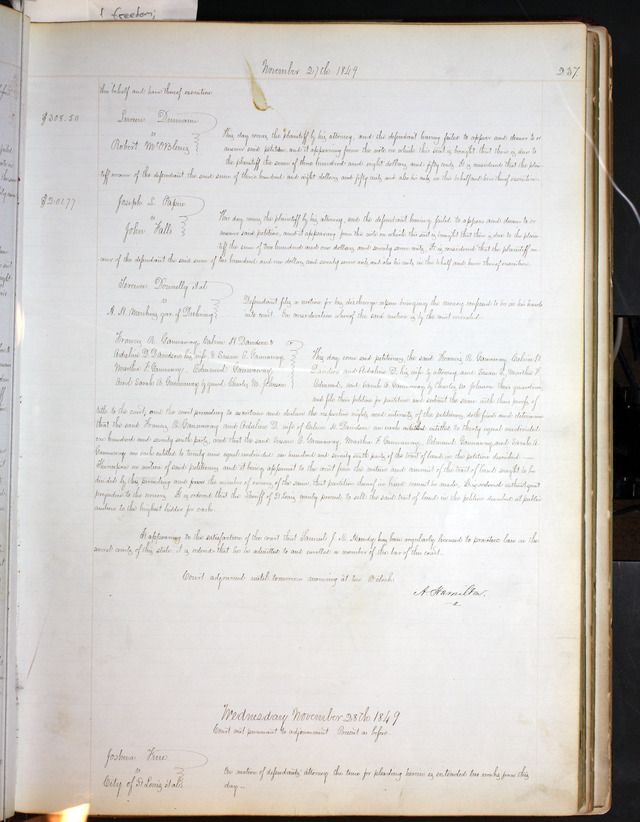 & freedom;
November 27th 1849
237
this behalf and have thereof execution
$308.50
vs
Robert
This day comes the plaintiff by his attorney, and the defendant having failed to appear and demur to or
answer said petition and it appearing from the note on which this suit is brought that there is due to
the plaintiff the sum of three hundred and eight dollars and fifty cents. It is considered that the plain-
tiff recover of the defendant the said sum of three hundred and eight dollars and fifty cents and also his costs in this behalf and have thereof execution.
$201.77
Joseph L. Papin
vs
John Falls
This day comes the plaintiff by his attorney, and the defendant having failed to appear and demur to or
answer said petition, and it appearing from the note on which this suit is brought that there is due to the plain-
tiff the sum of two hundred and one dollars and seventy seven cents, It is considered that the plaintiff re-
cover of the defendant the said sum of two hundred and one dollars and seventy seven cents and also his costs in this behalf and have thereof execution.
Terence Donnelly et al
vs
Defendant files a motion for his discharge upon bringing the money confessed to be in his hands
into court. On consideration whereof the said motion is by the court overruled.
Francis A. Gannaway, Calvin H Davidson &
Adaline D. Davidson his wife & Susan E. Gannaway
Martha F. Gannaway, Edmund Gannaway,
and Sarah A. Gannaway by guard. Charles W. Johnson
This day come said petitioners, the said Francis A. Gannaway, Calvin H
Davidson and Adaline D. his wife by attorney and Susan E, Martha F.
Edmund, and Sarah A Gannaway by Charles W. Johnson their guardian,
and file their petition for partition and submit the same with their proofs of
title to the court, and the court proceeding to ascertain and declare the respective rights and interests of the petitioners, doth find and determine
that the said Francis A. Gannaway and Adaline D. wife of Calvin H Davidson are each entitled to thirty equal undivided
one hundred and seventy sixth parts, and that the said Susan E Gannaway, Martha F. Gannaway, Edmund Gannaway and Sarah A.
Gannaway are each entitled to twenty nine equal undivided one hundred and seventy sixth parts of the tract of land in the petition described.
Thereupon on motion of said petitioners and it being apparent to the court from the nature and amount of the tract of land sought to be
divided by this proceeding and from the number of owners of the same, that partition thereof in kind cannot be made without great
prejudice to the owners, It is ordered that the Sheriff of St Louis county proceed to sell the said tract of land in the petition described at public
auction to the highest bidder for cash.
It appearing to the satisfaction of the court that Samuel J. M. has been regularly licensed to practice law in the
circuit courts of this state, it is ordered that he be admitted to and enrolled a member of the bar of this court.
Court adjourned until tomorrow morning at ten O'clock.
A. Hamilton.
Wednesday November 28th 1849
Court met pursuant to adjournment Present as before.
Joshua
vs
City of St Louis et als
On motion of defendants' attorney the time for pleading herein is extended two weeks from this
day.